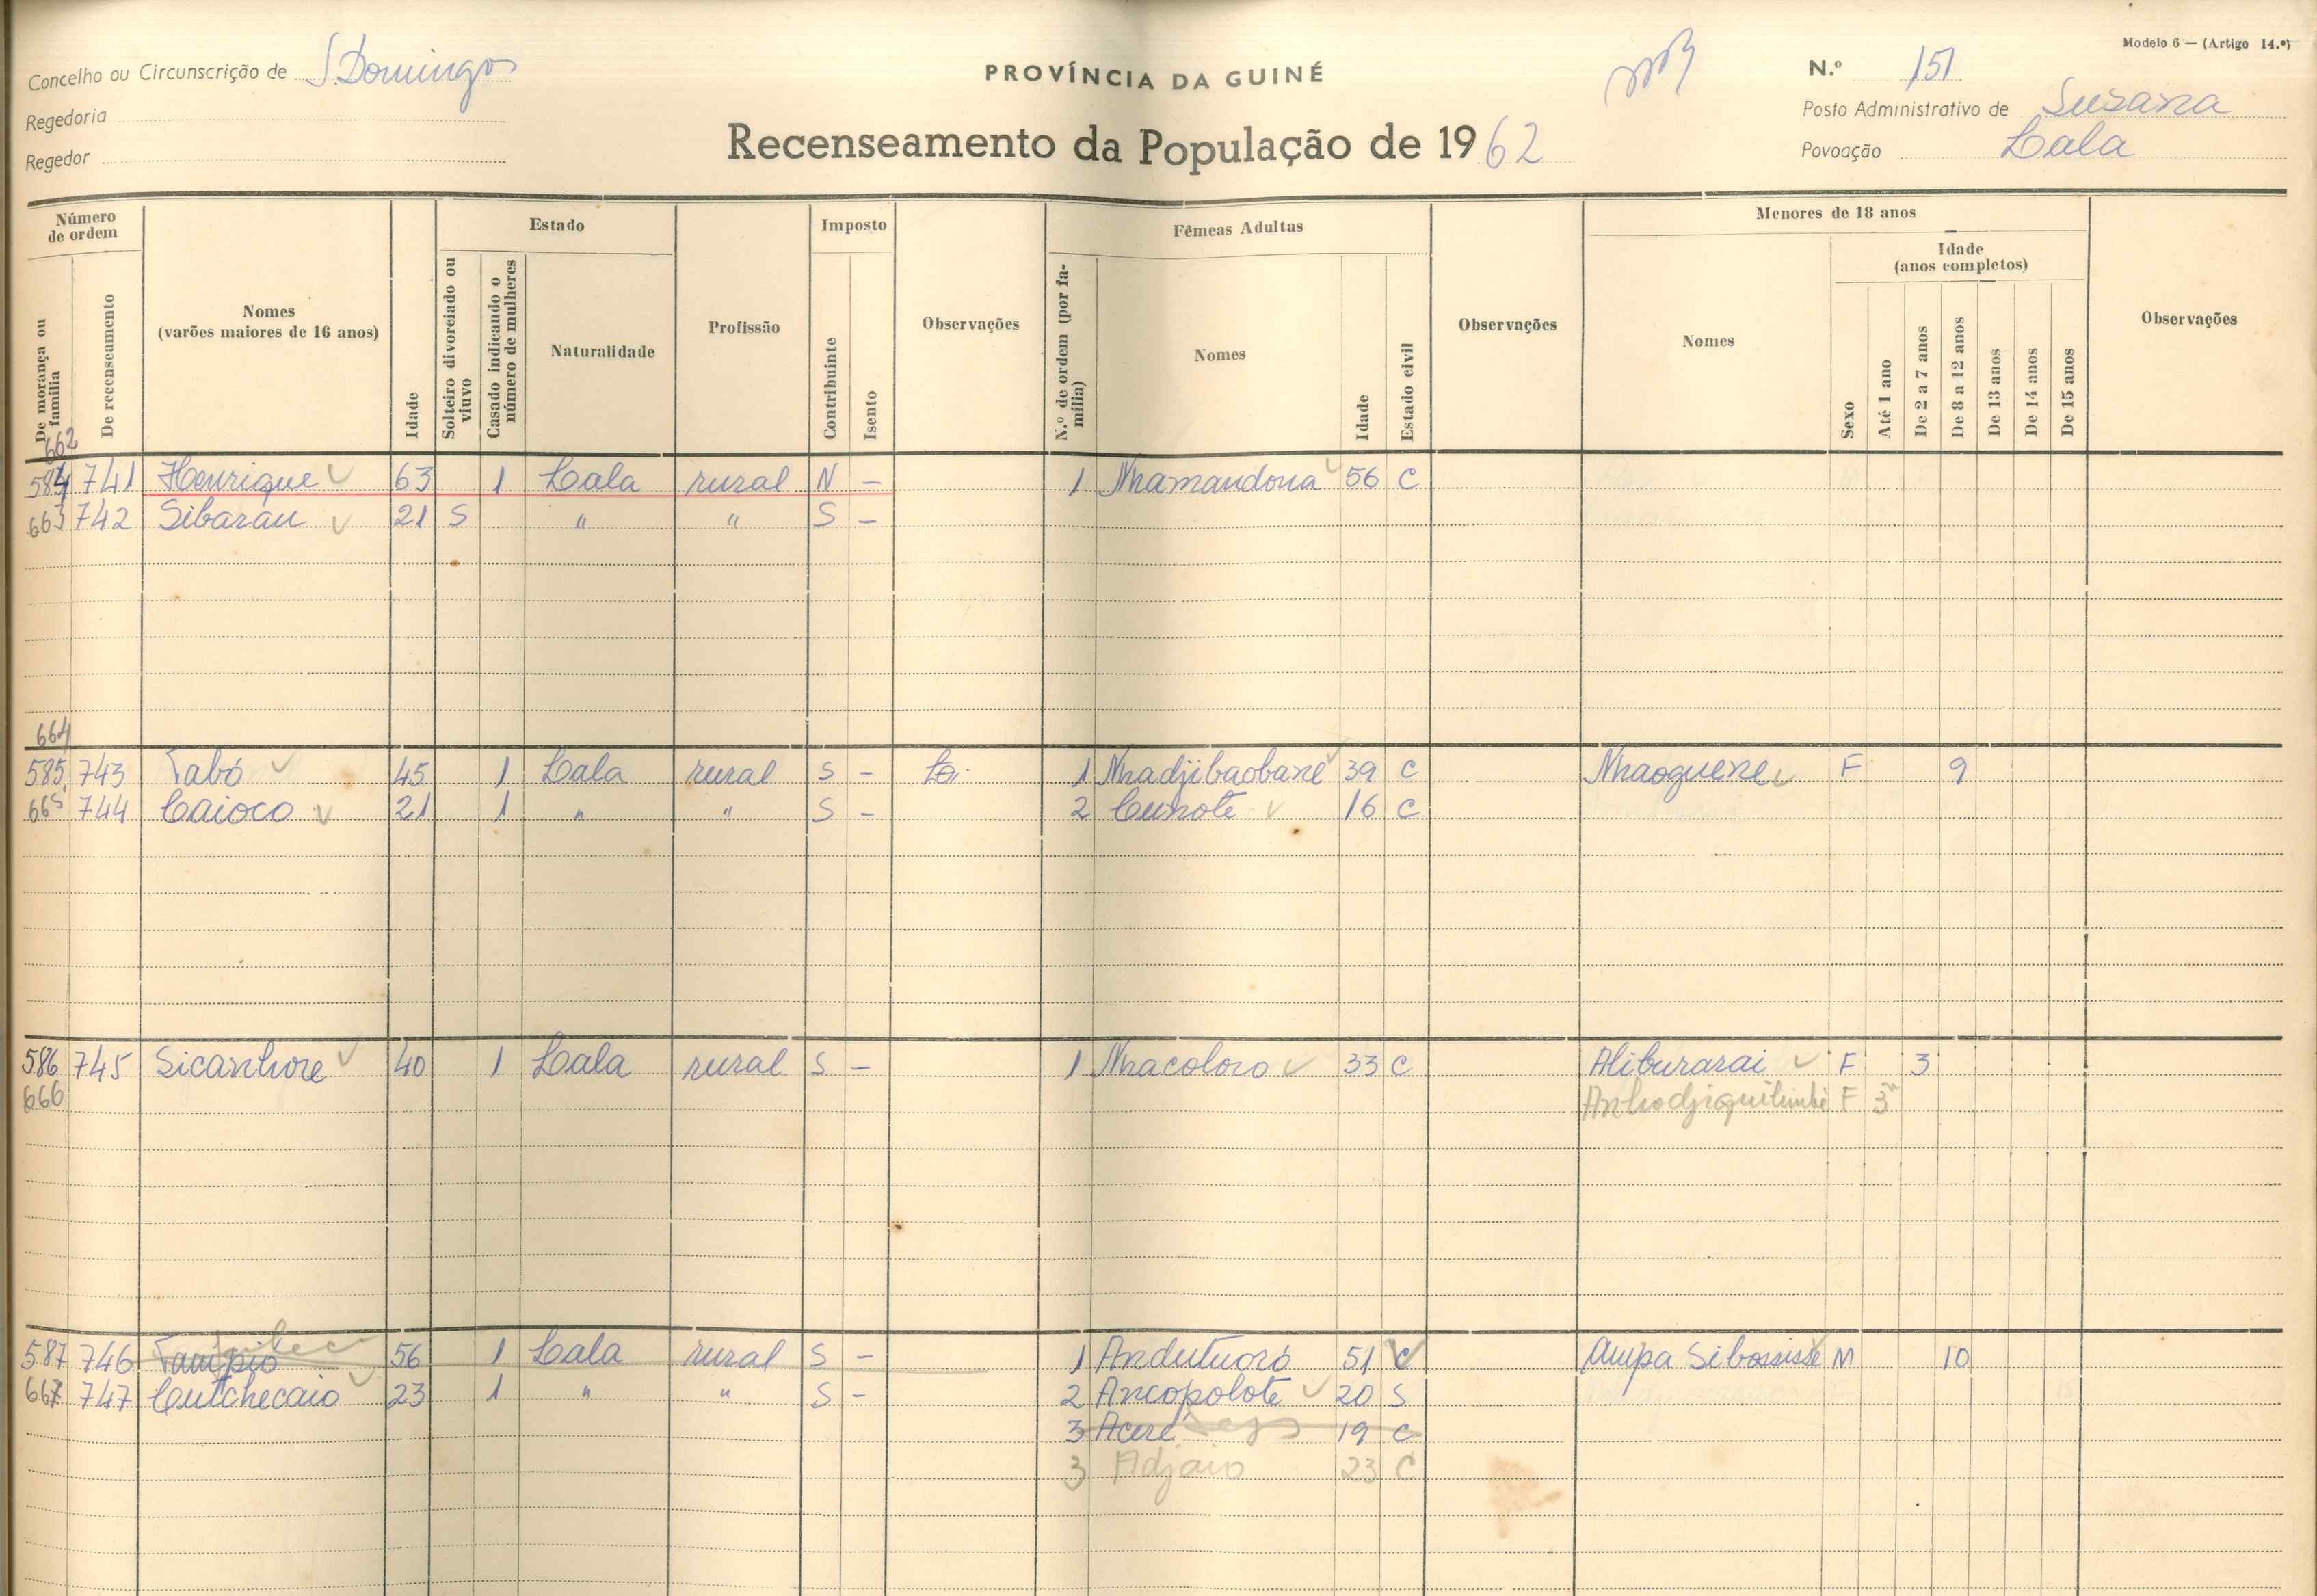 Modelo 6 — (Artigo 14.º)
Concelho ou Circunscrição de S. Domingos
PROVÍNCIA DA GUINÉ
N.º 151
Regedoria
Posto Administrativo de Suzana
Regedor
Recenseamento da População de 1962
Povoação Lala
Número de ordem
De morança ou família
De recenseamento
Nomes
(varões maiores de 16 anos)
Idade
Estado
Solteiro divorciado ou viuvo
Casado indicando o número de mulheres
Naturalidade
Profissão
Imposto
Contribuinte
Isento
Observações
Fêmeas Adultas
N.º de ordem (por família)
Nomes
Idade
Estado civil
Observações
Menores de 18 anos
Nomes
Sexo
Idade
(anos completos)
Até 1 ano
De 2 a 7 anos
De 8 a 12 anos
De 13 anos
De 14 anos
De 15 anos
Observações
662
584 741 Henrique 63 1 Lala rural N – 1 Nhamandona 56 C
663 742 Sibarau 21 S " " S –
664
585 743 Tabó 45 1 Lala rural S – 1 Nhadjibaobane 39 C Nhaoguene F 9
665 744 Caioco 21 1 " " S – 2 Cunote 16 C
586 745 Sicanhore 40 1 Lala rural S – 1 Nhacoloro 33 C Aliburarai F 3
666 F 3
587 746 Tampio 56 1 Lala rural S – 1 Andutuoró 51 C Ampa Sibossisse M 10
667 747 Cutchecaio 23 1 " " S – 2 Ancopolote 20 S
3 Aceré 19 C
3 Adjaio 23 C